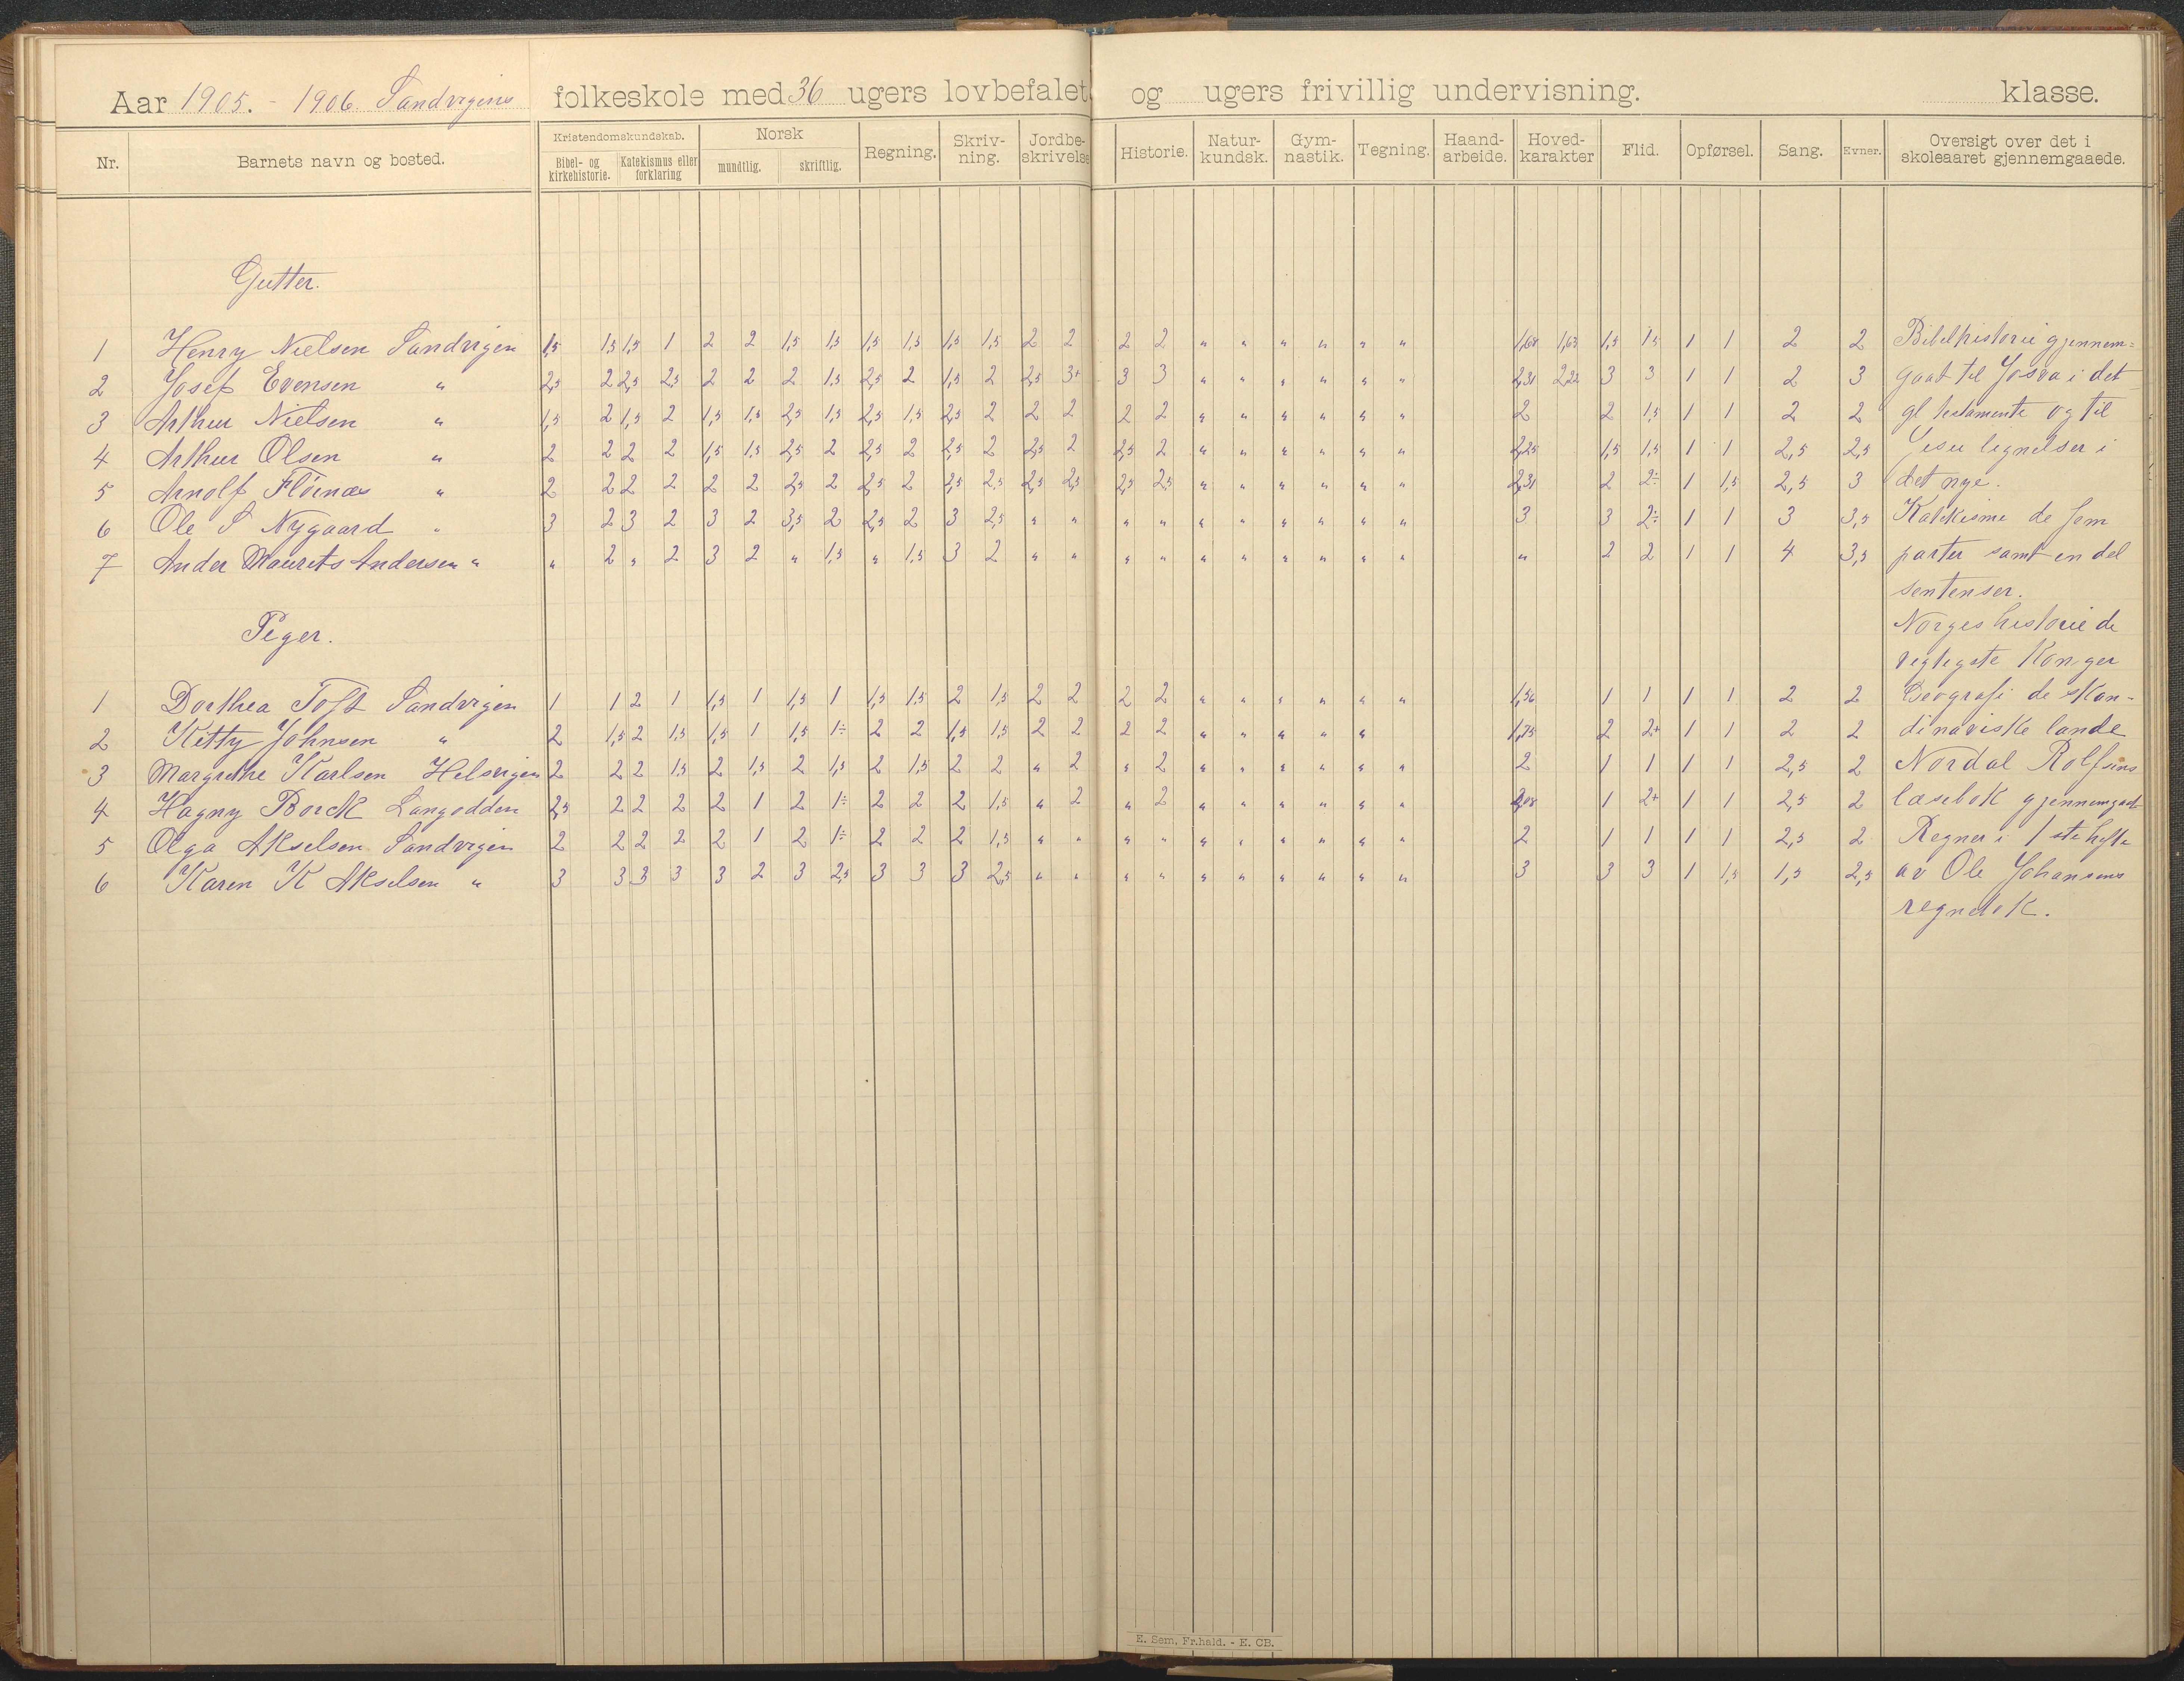 Aar 1905. - 1906. Sandvigens folkeskole med 36 ugers lovbefalet og ugers frivillig undervisning. klasse.
Nr. Barnets navn og bosted. Kristendomskundskab. Bibel- og kirkehistorie. Katekismus eller forklaring Norsk mundtlig. skriftlig. Regning. Skriv-ning. Jordbe-skrivelse Historie. Natur-kundsk. Gym-nastik. Tegning. Haand-arbeide. Hoved-karakter Flid. Opførsel. Sang. Evner. Oversigt over det i skoleaaret gjennemgaaede.
Gutter.
1 Henry Nielsen Sandvigen 1,5 1,5 1,5 1 2 2 1,5 1,5 1,5 1,5 1,5 1,5 2 2 2 2 " " " " " " 1,68 1,63 1,5 1,5 1 1 2 2 Bibelhistorie gjennem=
2 Josef Evensen " 2,5 2 2,5 2,5 2 2 2 1,5 2,5 2 1,5 2 2,5 3+ 3 3 " " " " " " 2,31 2,22 3 3 1 1 2 3 gaat til Josva i det
3 Arthur Nielsen " 1,5 2 1,5 2 1,5 1,5 2,5 1,5 2,5 1,5 2,5 2 2 2 2 2 " " " " " " 2 2 1,5 1 1 2 2 gl testamente og til
4 Arthur Olsen " 2 2 2 2 1,5 1,5 2,5 2 2,5 2 2,5 2 2,5 2 2,5 2 " " " " " " 2,25 1,5 1,5 1 1 2,5 2,5 Jesu lignelser i
5 Arnolf Flöinæs " 2 2 2 2 2 2 2,5 2 2,5 2 2,5 2,5 2,5 2,5 2,5 2,5 " " " " " " 2,31 2 2÷ 1 1,5 2,5 3 det nye.
6 Ole S Nygaard " 3 2 3 2 3 2 3,5 2 2,5 2 3 2,5 " " " " " " " " " " 3 3 2÷ 1 1 3 3,5 Katekisme de fem
7 Ander Maurits Andersen " " 2 " 2 3 2 " 1,5 " 1,5 3 2 " " " " " " " " " " " 2 2 1 1 4 3,5 parter samt en del
sentenser.
Piger. Norges historie de
vigtigste Konger
1 Dorthea Toft Sandvigen 1 1 2 1 1,5 1 1,5 1 1,5 1,5 2 1,5 2 2 2 2 " " " " " " 1,56 1 1 1 1 2 2 Geografi de skan-
2 Kitty Johnsen " 2 1,5 2 1,5 1,5 1 1,5 1÷ 2 2 1,5 1,5 2 2 2 2 " " " " " 1,75 2 2+ 1 1 2 2 dinaviske lande
3 Margrethe Karlsen Helsvigen 2 2 2 1,5 2 1,5 2 1,5 2 1,5 2 2 " 2 " 2 " " " " " " 2 1 1 1 1 2,5 2 Nordal Rolfsens
4 Hagny Borck Langodden 2,5 2 2 2 2 1 2 1÷ 2 2 2 1,5 " 2 " 2 " " " " " " 2,08 1 2+ 1 1 2,5 2 læsebok gjennemgaat
5 Olga Akselsen Sandvigen 2 2 2 2 2 1 2 1÷ 2 2 2 1,5 " " " " " " " " " " 2 1 1 1 1 2,5 2 Regner i 1ste hefte
6 Karen K Akselsen " 3 3 3 3 3 2 3 2,5 3 3 3 2,5 " " " " " " " " " " 3 3 3 1 1,5 1,5 2,5 av Ole Johansens
regnebok.
E. Sem, Fr.hald. - E. CB.